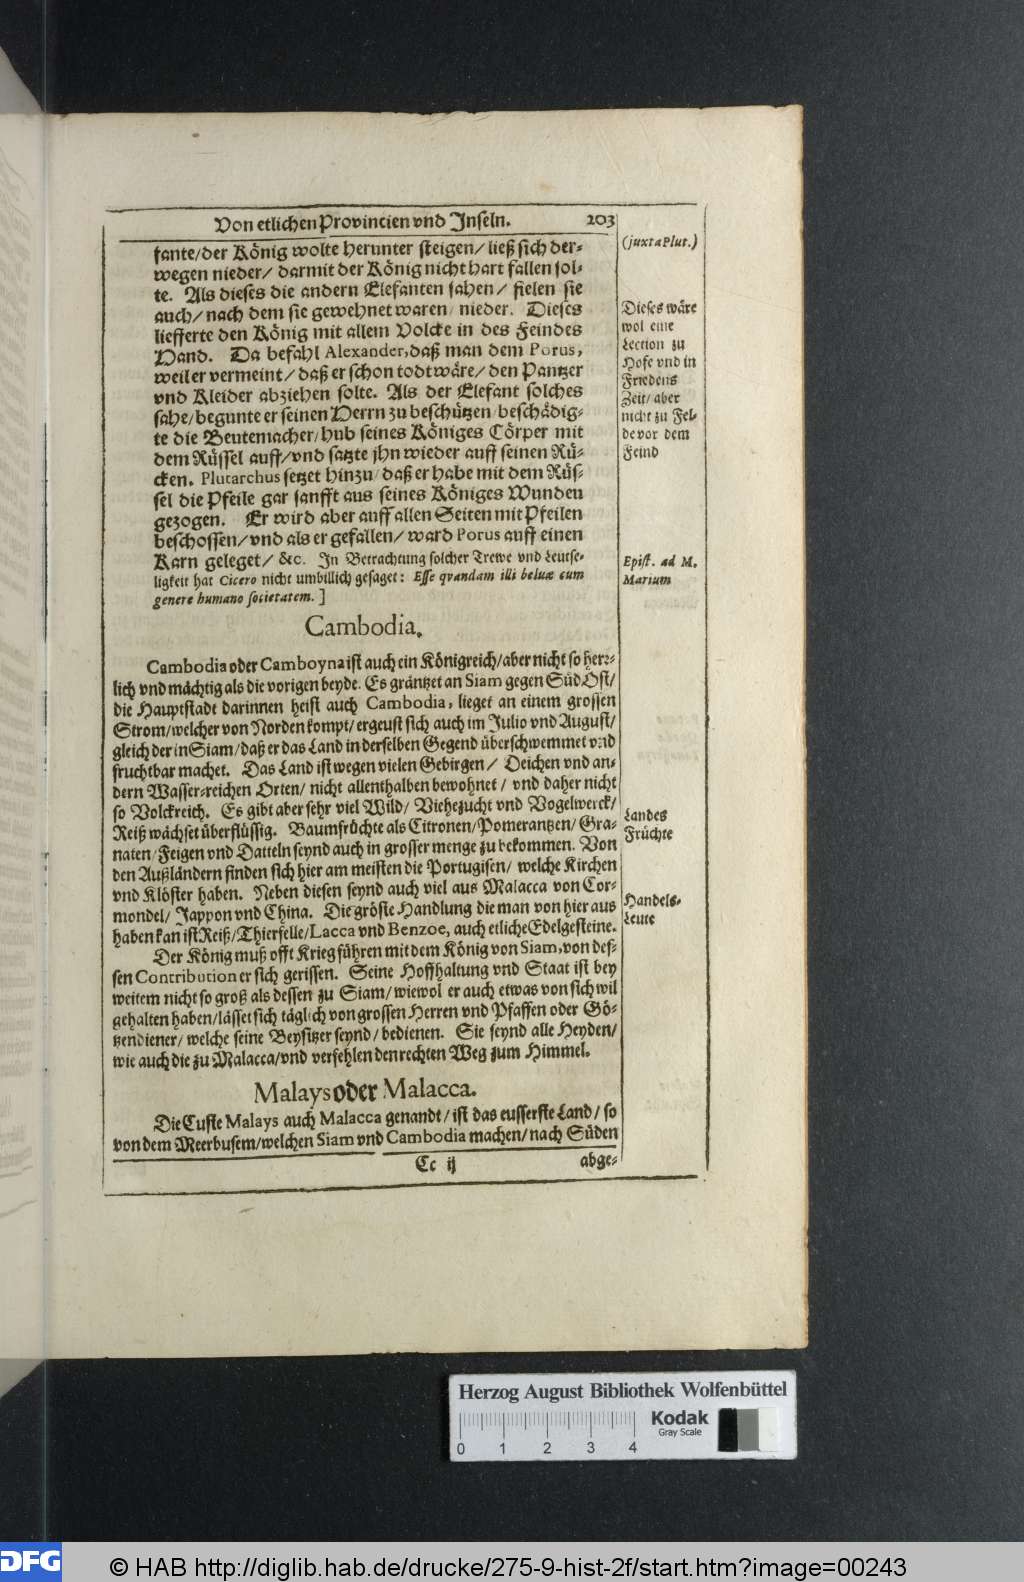 Von etlichen Provincien vnd Inseln. 203
fante/der König wolte herunter steigen/ließ sich der-
wegen nieder/ darmit der König nicht hart fallen sol-
te. Als dieses die andern Elefanten sahen/ fielen sie
auch/ nach dem sie gewehnet waren/ nieder. Dieses
liefferte den König mit allem Volcke in des Feindes
Hand. Da befahl Alexander, daß man dem Porus,
weil er vermeint/ daß er schon todt wäre/ den Pantzer
vnd Kleider abziehen solte. Als der Elefant solches
sahe/begunte er seinen Herrn zu beschützen/beschädig-
te die Beutemacher/hub seines Königes Cörper mit
dem Rüssel auff/vnd satzte jhn wieder auff seinen Rü-
cken. Plutarchus setzet hinzu/ daß er habe mit dem Rüs-
sel die Pfeile gar sanfft aus seines Königes Wunden
gezogen. Er wird aber auff allen Seiten mit Pfeilen
beschossen/vnd als er gefallen/ ward Porus auff einen
Karn geleget/ &c. In Betrachtung solcher Trewe vnd Leutse-
ligkeit hat Cicero nicht umbillich gesaget: Esse qvandam illi beluæ cum
genere humano societatem.]
(juxta Plut.)
Dieses wäre
wol eine
Lection zu
Hofe vnd in
Friedens
Zeit/ aber
nicht zu Fel-
de vor dem
Feind
Epist. ad M.
Marium
Cambodia.
Cambodia oder Camboyna ist auch ein Königreich/aber nicht so herr-
lich vnd mächtig als die vorigen beyde. Es gräntzet an Siam gegen Süd Ost/
die Hauptstadt darinnen heist auch Cambodia, lieget an einem grossen
Strom/welcher von Norden kompt/ergeust sich auch im Julio vnd August/
gleich der in Siam/daß er das Land in derselben Gegend überschwemmet vnd
fruchtbar machet. Das Land ist wegen vielen Gebirgen/ Deichen vnd an-
dern Wasser-reichen Orten/ nicht allenthalben bewohnet/ vnd daher nicht
so Volckreich. Es gibt aber sehr viel Wild/ Viehezucht vnd Vogelwerck/
Reiß wächset überflüssig. Baumfrüchte als Citronen/Pomerantzen/ Gra-
naten/Feigen vnd Datteln seynd auch in grosser menge zu bekommen. Von
den Außländern finden sich hier am meisten die Portugisen/ welche Kirchen
vnd Klöster haben. Neben diesen seynd auch viel aus Malacca von Cor-
mondel/ Jappon vnd China. Die gröste Handlung die man von hier aus
haben kan ist Reiß/Thierfelle/Lacca vnd Benzoe, auch etliche Edelgesteine.
Der König muß offt Krieg führen mit dem König von Siam, von des-
sen Contribution er sich gerissen. Seine Hoffhaltung vnd Staat ist bey
weitem nicht so groß als dessen zu Siam/wiewol er auch etwas von sich wil
gehalten haben/lässet sich täglich von grossen Herren vnd Pfaffen oder Gö-
tzendiener/ welche seine Beysitzer seynd/ bedienen. Sie seynd alle Heyden/
wie auch die zu Malacca/vnd verfehlen den rechten Weg zum Himmel.
Landes
Früchte
Handels-
Leute
Malays oder Malacca.
Die Custe Malays auch Malacca genandt/ ist das eusserste Land/ so
von dem Meerbusem/welchen Siam vnd Cambodia machen/nach Süden
Cc ij abge-
Herzog August Bibliothek Wolfenbüttel
Kodak
Gray Scale
0 1 2 3 4
DFG © HAB http://diglib.hab.de/drucke/275-9-hist-2f/start.htm?image=00243